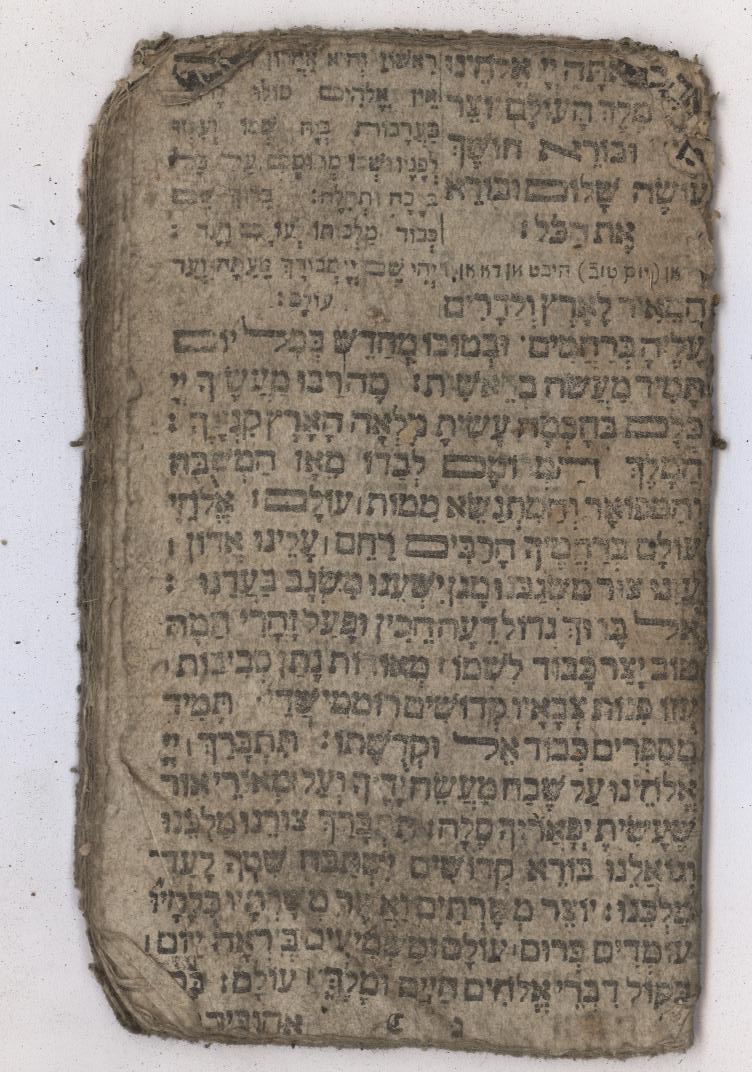 אַתָּה יְיָ אֱלֹהֵינוּ
מֶלֶךְ הָעוֹלָם יוֹצֵר
וּבוֹרֵא חוֹשֶׁךְ
עוֹשֶׂה שָׁלוֹם וּבוֹרֵא
אֶת הַכֹּל׃
רִאשׁוֹן וְהִיא
אֵין אֱלֹהִים סולו
בָּעֲרָבוֹת בְּיָהּ שְׁמוֹ וְעִלְזוּ
לְפָנָיו עַל כָּל
בְּרָכָה וּתְהִלָּה׃ בָּרוּךְ שֵׁם
כְּבוֹד מַלְכוּתוֹ וָעֶד׃
יְהִי שֵׁם יְיָ מְבוֹרָךְ מֵעַתָּה וְעַד
עוֹלָם׃
אן (יום טוב) היבט אן
הַמֵּאִיר לָאָרֶץ וְלַדָּרִים
עָלֶיהָ בְּרַחֲמִים׳ וּבְטוּבוֹ מְחַדֵּשׁ בְּכָל יוֹם
תָּמִיד מַעֲשֵׂה בְרֵאשִׁית׃ מָה רַבּוּ מַעֲשֶׂיךָ יְיָ
כֻּלָּם בְּחָכְמָה עָשִׂיתָ מָלְאָה הָאָרֶץ קִנְיָנֶךָ׃
הַמֶּלֶךְ הַמְרוֹמָם לְבַדּוֹ מֵאָז הַמְשֻׁבָּח
וְהַמְפוֹאָר וְהַמִּתְנַשֵּׂא מִמוֹת עוֹלָם׃ אֱלֹהֵי
עוֹלָם בְּרַחֲמֶיךָ הָרַבִּים רַחֵם עָלֵינוּ אֲדוֹן
עֻזֵּנוּ צוּר מִשְׂגַּבֵּנוּ מָגֵן יִשְׁעֵנוּ מִשְׂגָּב בַּעֲדֵנוּ׃
אֵל בָּרוּךְ גְּדוֹל דֵּעָה הֵכִין וּפָעַל זָהֳרֵי חַמָּה
טוֹב יָצַר כָּבוֹד לִשְׁמוֹ׃ מְאוֹרוֹת נָתַן סְבִיבוֹת
עֻזּוֹ פִּנּוֹת צְבָאָיו קְדוֹשִׁים רוֹמְמֵי שַׁדַּי׳ תָּמִיד
מְסַפְּרִים כְּבוֹד אֵל וּקְדֻשָּׁתוֹ׃ תִּתְבָּרַךְ יְיָ
אֱלֹהֵינוּ עַל שֶׁבַח מַעֲשֵׂה יָדֶיךָ וְעַל מְאוֹרֵי אוֹר
שֶׁעָשִׂיתָ יְפָאֲרוּךָ סֶּלָה׃ תִּתְבָּרַךְ צוּרֵנוּ מַלְכֵּנוּ
וְגוֹאֲלֵנוּ בּוֹרֵא קְדוֹשִׁים יִשְׁתַּבַּח שִׁמְךָ לָעַד
מַלְכֵּנוּ׃ יוֹצֵר מְשָׁרְתִים וַאֲשֶׁר מְשָׁרְתָיו כֻּלָּם
עוֹמְדִים בְּרוּם עוֹלָם וּמַשְׁמִיעִים בְּיִרְאָה יַחַד
בְּקוֹל דִּבְרֵי אֱלֹהִים חַיִּים וּמֶלֶךְ עוֹלָם׃
אהובים